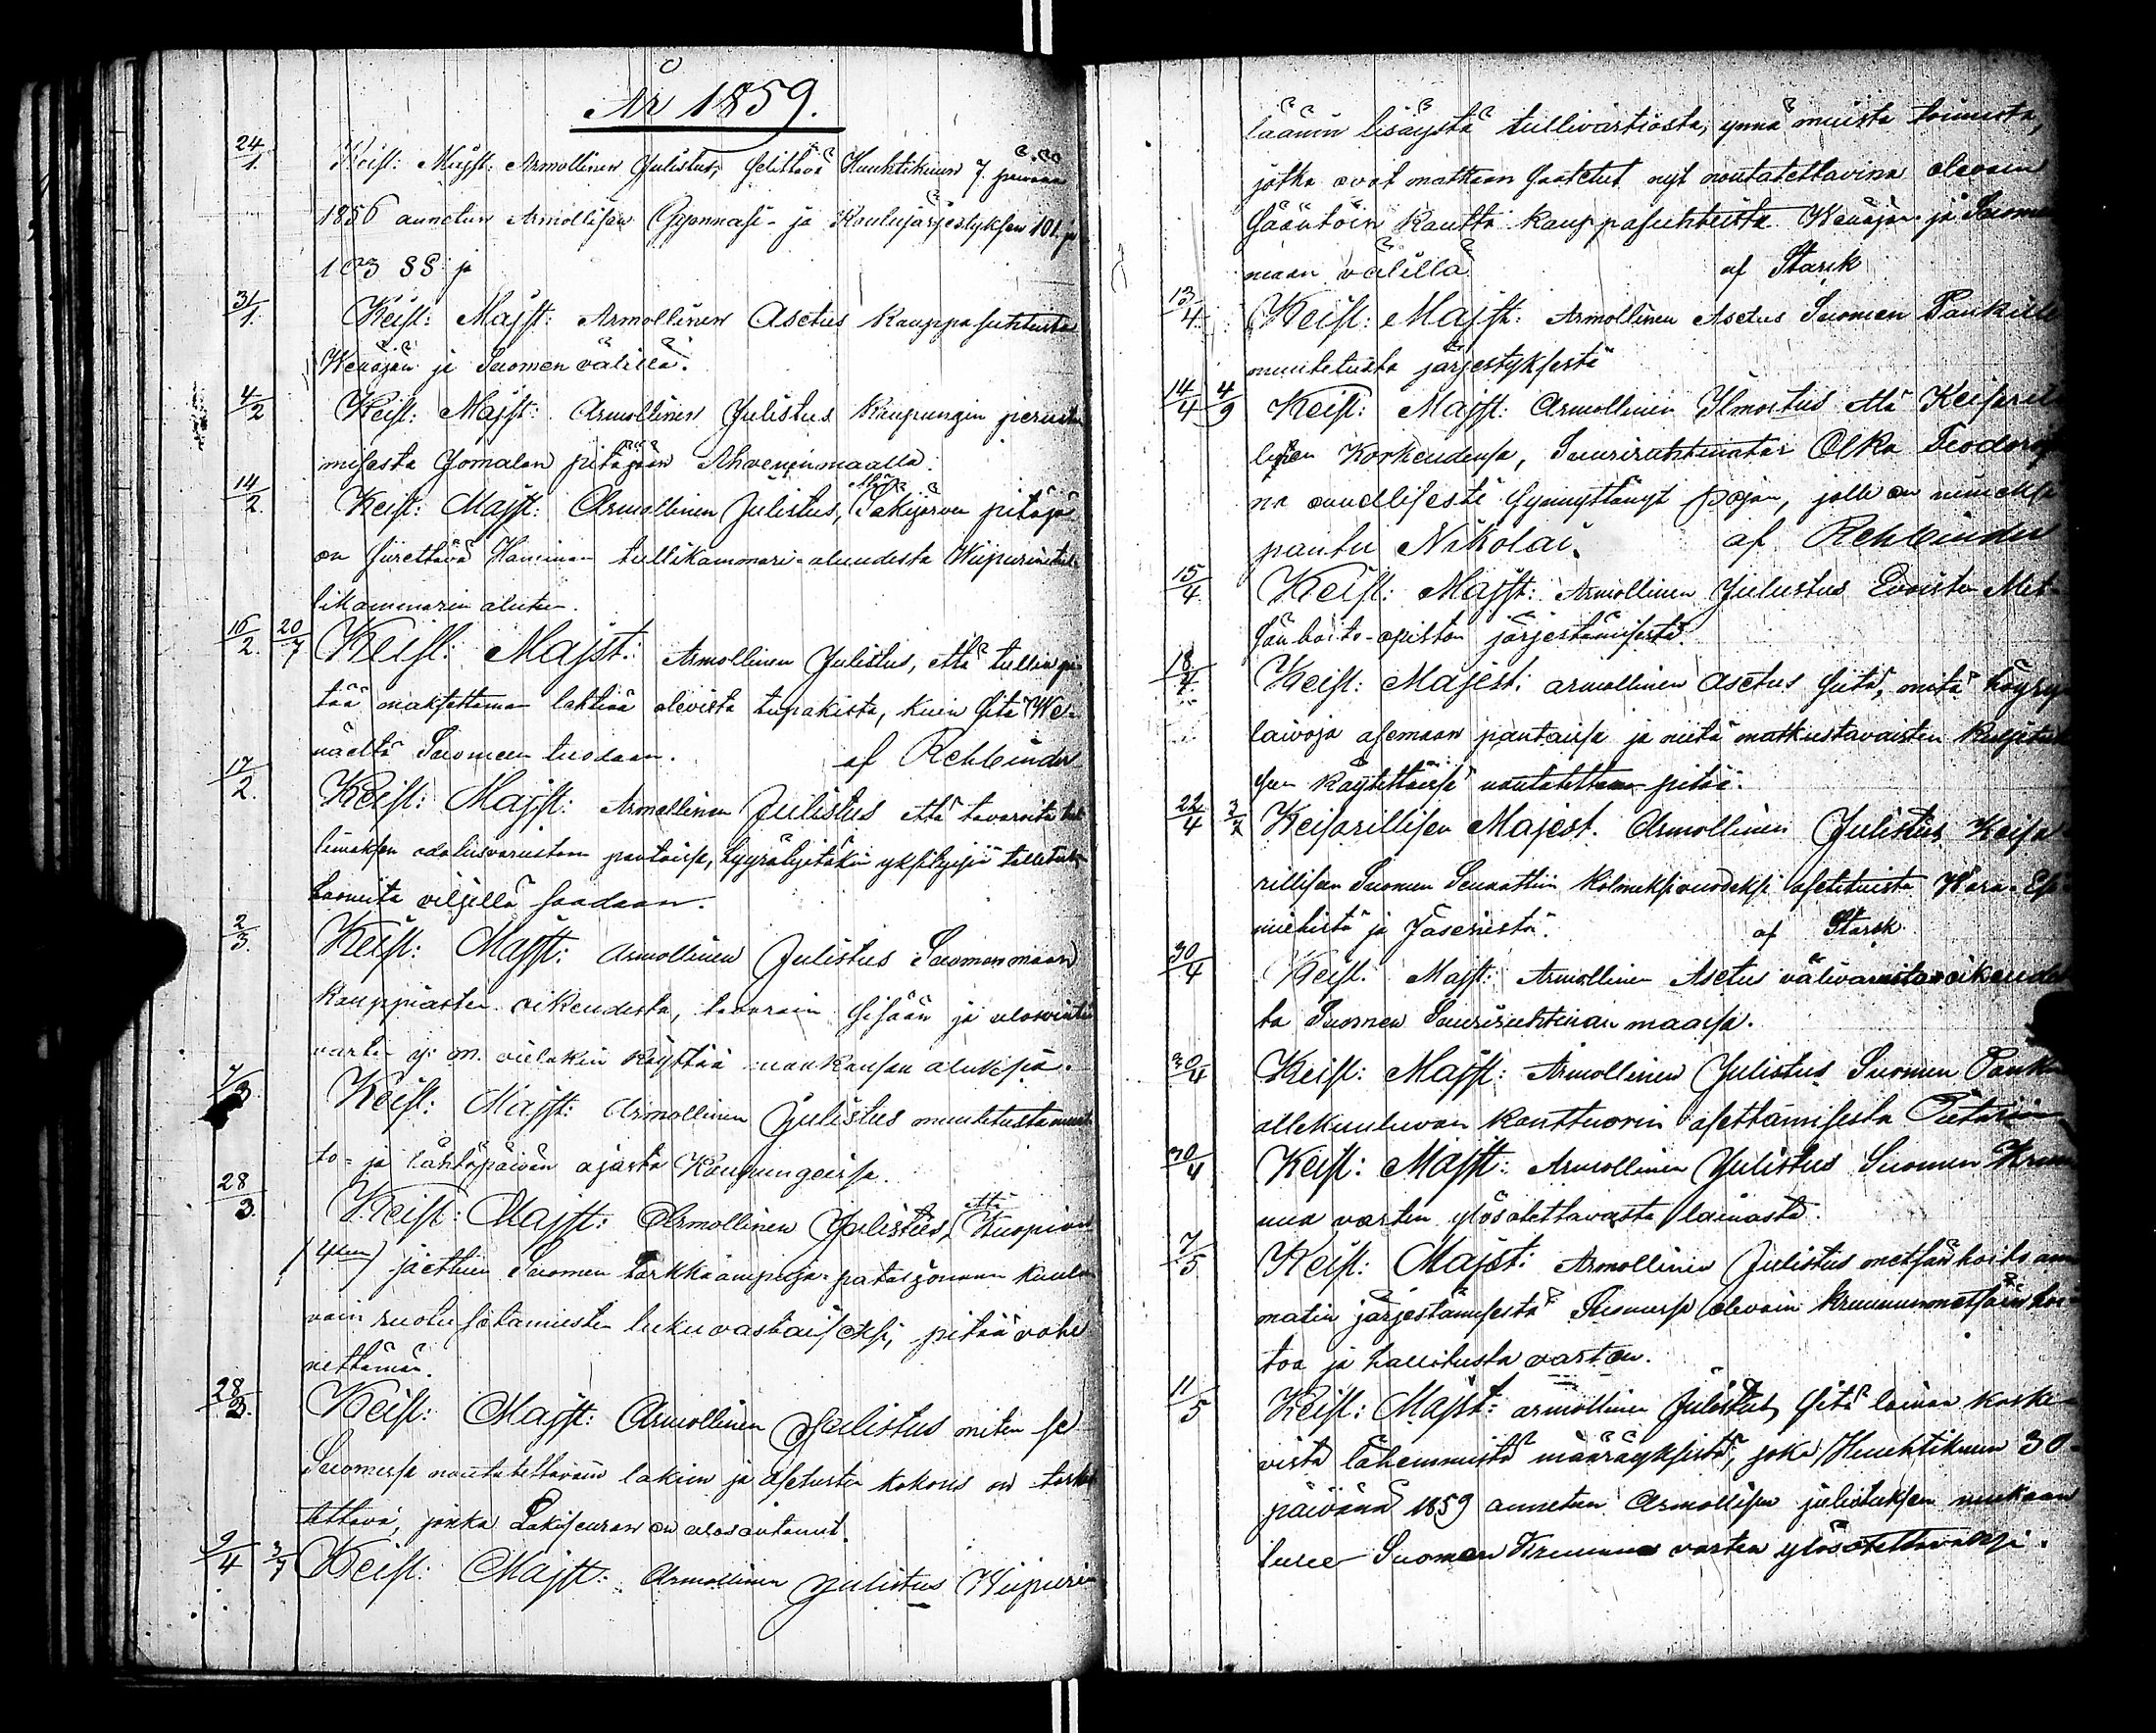 År 1859.
24/1. Keisl: Majst: Armollinen Julistus, selittävä Huuhtikuun 7. päivänä
1856 annetun Armollisen Gymnasi- ja Koulujärjestyksen 101. ja
103 §§: ja
31/1. Keisl: Majst: Armollinen Asetus kauppasuhteista
Wenäjän ja Suomen välillä.
4/2 Keisl: Majst: Armollinen Julistus kaupungin perusta
misesta Jomalan pitäjään Ahvenenmaalla.
14/2. Keisl: Majst: Armollinen Julistus, Säkijärven pitäjä
on siirettävä Haminan tullikammari-aluudesta Wiipurin tul-
likammarin alueen.
16/2. 20/7 Keisl: Majst: Armollinen Julistus, että tullin pi-
tää maksettaman lehtiää olevista tupakista, kuin sitä We-
näeltä Suomeen tuodaan. af Rehbinder
17/2. Keisl: Majst: Armollinen Julistus että tavaroita tul
limaksen edeltisvarustan pantaissa,
huoneita viljellä saadaan.
2/3. Keisl: Majst: Armollinen Julistus Suomenmaan
kauppiasten oikeudesta, tavarain sisään ja ulosvientiä
varten y: m. vielakin käyttää muukansan aluksia.
7/3. Keisl: Majst: Armollinen Julistus muutetusta muut-
to- ja lähtöpäivän ajasta Kaupungeissa.
28/3. Keisl: Majst: Armollinen Julistus, että Kuopion
(4:een) jaettuun Suomen tarkkaampuja-pataljonaan kuulu-
vain ruotusotamiesten luku vastaiseksi, pitää vähe
nettämän.
28/3. Keisl: Majst: Armollinen Julistus miten se
Suomessa noutatettavain lakien ja asetusten kokous on tarkas
tettava, jonka Lakiseuran on ulosantanut.
9/4 3/7 Keisl: Majst: Armollinen Julistus Wiipurin
läänin lisäystä tullivartiosta, ynnä muista toimista,
jotka ovat matkaan saatetut nyt noutatettavina olevain
sääntöin kautta kauppasuhteista Wenäjän ja Suomen
maan välillä. af Stark
13/4. Keisl: Majst: Armollinen Asetus Suomen Pankille
muutetusta järjestyksestä
14/4 4/9 Keisl: Majst: Armollinen Ilmoitus että Keisaril
lisen Korkeudensa, Suuriruhtinatar Olka Feodorof
na onnellisesti synnyttänyt pojan, jolle on nimeksi
pantu Nikolai. af Rehbinder
15/4. Keisl: Majst: Armollinen Julistus Evoisten Met-
sänhoito-opiston järjestämisestä.
18/4. Keisl: Majest: armollinen Asetus siitä, mitä höyry-
laivoja asemaan pantaissa ja niitä matkustavaisten kuljetuk
seen käytettäissä noutatettaman pitää.
22/4 3/7 Keisarillisen Majest. Armollinen Julistus Keisa-
rillisen Suomen Senaattiin kolmeksi vuodeksi asetetuista Wara-Esi-
miehistä ja Jäsenistä. af Stark
30/4 Keisl. Majst: Armollinen Asetus välivarasto-oikeudes
ta Suomen Suuriruhtinan maassa.
30/4 Keisl: Majst: Armollinen Julistus Suomen Pank
allekuuluvan konttuorin asettamisesta Pietariin
30/4 Keisl: Majst: Armollinen Julistus Suomen Kruu
nua varten ylösotettavasta lainasta.
7/5 Keisl: Majst: Armollinen Julistus metsänhoito am
matin järjestämisestä Suomessa olevain kruununmetsäin hoi-
toa ja hallitusta varten.
11/5 Keisl: Majst: armollinen Julistus, sitä lainaa koske-
vista lähemmistä määräyksistä, joka Huuhtikuun 30
päivänä 1859 annetun Armollisen julistuksen mukaan
tulee Suomen Kruunua varten ylösotettavaksi.